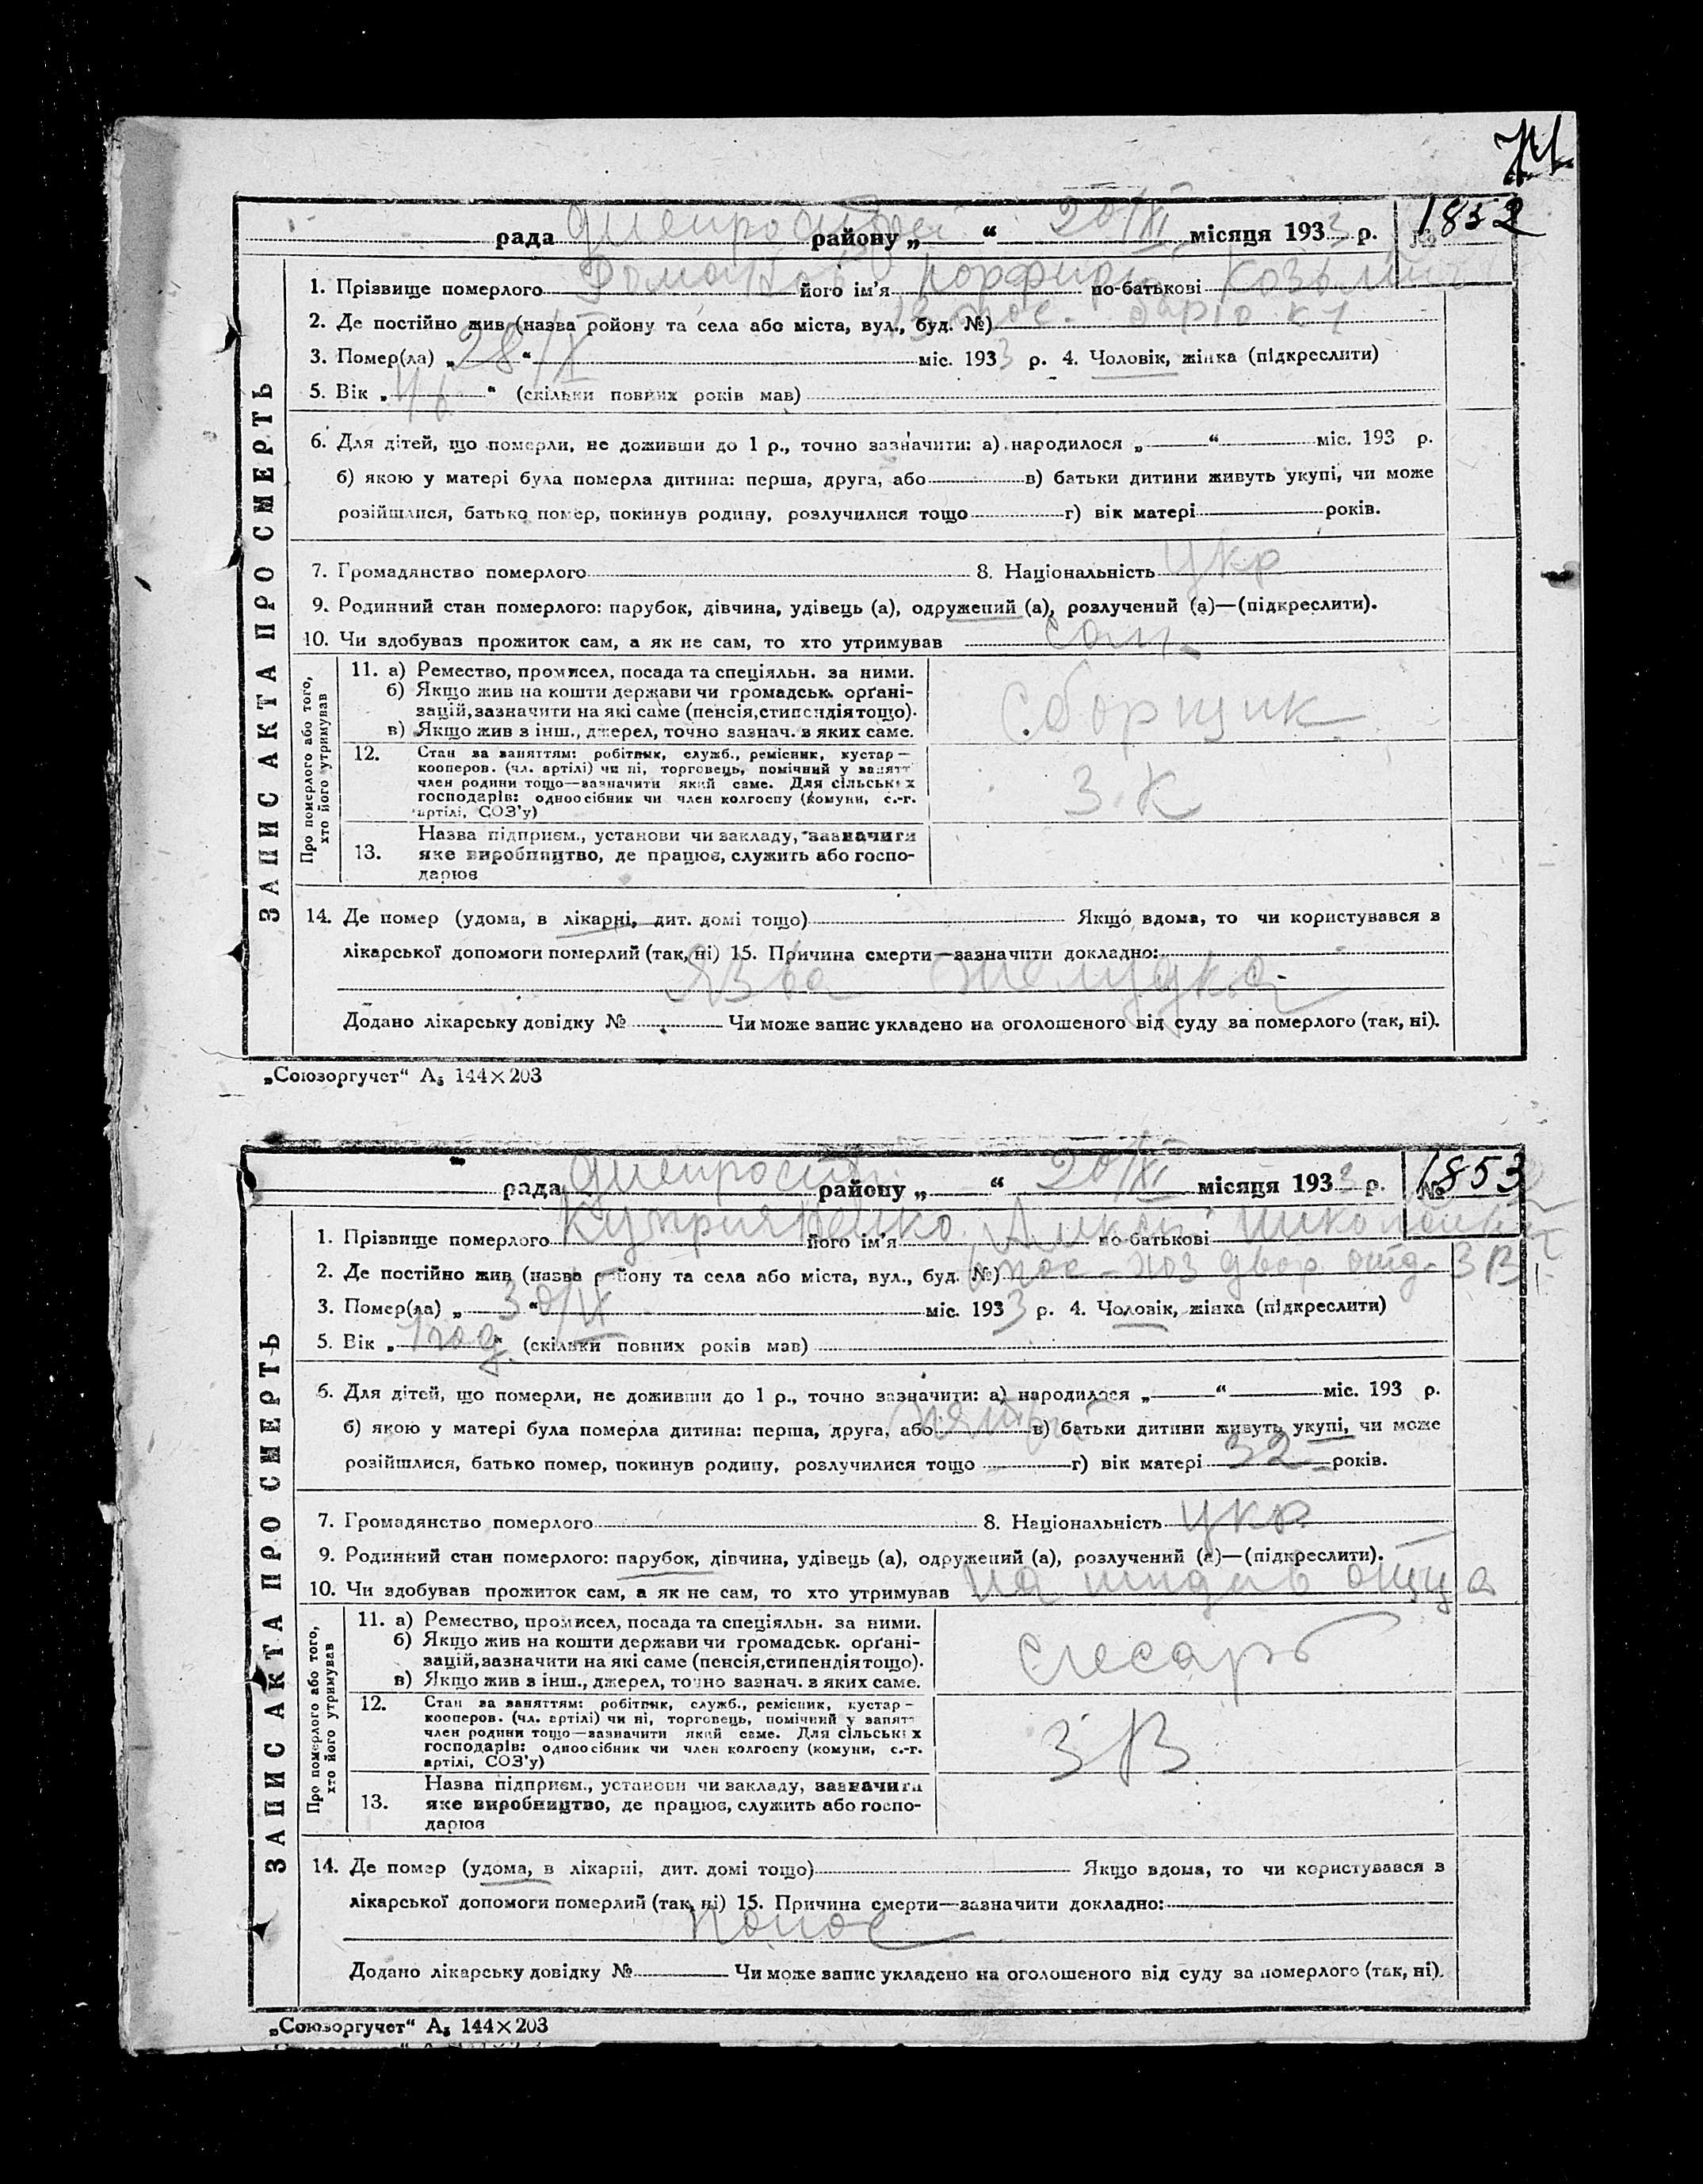 1852
рада Днепрострой району „ “ 20/XI місяця 1933 р. №
1. Прізвище померлого його ім'я по-батькові
2. Де постійно жив (назва ройону та села або міста, вул., буд. №)
3. Помер(ла) „28/X“ міс. 1933 р. 4. Чоловік, жінка (підкреслити)
5. Вік „ “ (скільки повних років мав)
6. Для дітей, що померли, не доживши до 1 р., точно зазначити: а) народилося „ “ міс. 193 р.
б) якою у матері була померла дитина: перша, друга, або в) батьки дитини живуть укупі, чи може
розійшлися, батько помер, покинув родину, розлучилися тощо г) вік матері років.
7. Громадянство померлого 8. Національність укр
9. Родинний стан померлого: парубок, дівчина, удівець (а), одружений (а), розлучений (а)—(підкреслити).
10. Чи здобував прожиток сам, а як не сам, то хто утримував сам
11. а) Ремество, промисел, посада та спеціяльн. за ними.
б) Якщо жив на кошти держави чи громадськ. орґані-
зацій, зазначити на які саме (пенсія, стипендія тощо).
в) Якщо жив з інш., джерел, точно зазнач. з яких саме.
Сборщик
12. Стан за заняттям: робітник, служб., ремісник, кустар—
кооперов. (чл. артілі) чи ні, торговець, помічний у занятт
член родини тощо—зазначити який саме. Для сільських
господарів: одноосібник чи член колгоспу (комуни, с.-г.
артілі, СОЗ'у)
З.К
13. Назва підприєм., установи чи закладу, зазначити
яке виробництво, де працює, служить або госпо-
дарює
14. Де помер (удома, в лікарні, дит. домі тощо) Якщо вдома, то чи користувався в
лікарської допомоги померлий (так, ні) 15. Причина смерти—зазначити докладно:
Язва желудка
Додано лікарську довідку № Чи може запис укладено на оголошеного від суду за померлого (так, ні).
ЗАПИС АКТА ПРО СМЕРТЬ
Про померлого або того,
хто його утримував
„Союзоргучет“ А₅ 144×203
1853
рада Днепростр. району „ “ 20/XI місяця 1933 р. №
1. Прізвище померлого Куприяненко його ім'я по-батькові
2. Де постійно жив (назва ройону та села або міста, вул., буд. №)
3. Помер(ла) „ “ міс. 1933 р. 4. Чоловік, жінка (підкреслити)
5. Вік „1 год“ (скільки повних років мав)
6. Для дітей, що померли, не доживши до 1 р., точно зазначити: а) народилося „ “ міс. 193 р.
б) якою у матері була померла дитина: перша, друга, або в) батьки дитини живуть укупі, чи може
розійшлися, батько помер, покинув родину, розлучилися тощо г) вік матері 32 років.
7. Громадянство померлого 8. Національність укр
9. Родинний стан померлого: парубок, дівчина, удівець (а), одружений (а), розлучений (а)—(підкреслити).
10. Чи здобував прожиток сам, а як не сам, то хто утримував на иждив отца
11. а) Ремество, промисел, посада та спеціяльн. за ними.
б) Якщо жив на кошти держави чи громадськ. орґані-
зацій, зазначити на які саме (пенсія, стипендія тощо).
в) Якщо жив з інш., джерел, точно зазнач. з яких саме.
слесарь
12. Стан за заняттям: робітник, служб., ремісник, кустар—
кооперов. (чл. артілі) чи ні, торговець, помічний у занятт
член родини тощо—зазначити який саме. Для сільських
господарів: одноосібник чи член колгоспу (комуни, с.-г.
артілі, СОЗ'у)
З В
13. Назва підприєм., установи чи закладу, зазначити
яке виробництво, де працює, служить або госпо-
дарює
14. Де помер (удома, в лікарні, дит. домі тощо) Якщо вдома, то чи користувався в
лікарської допомоги померлий (так, ні) 15. Причина смерти—зазначити докладно:
понос
Додано лікарську довідку № Чи може запис укладено на оголошеного від суду за померлого (так, ні).
ЗАПИС АКТА ПРО СМЕРТЬ
Про померлого або того,
хто його утримував
„Союзоргучет“ А₅ 144×203